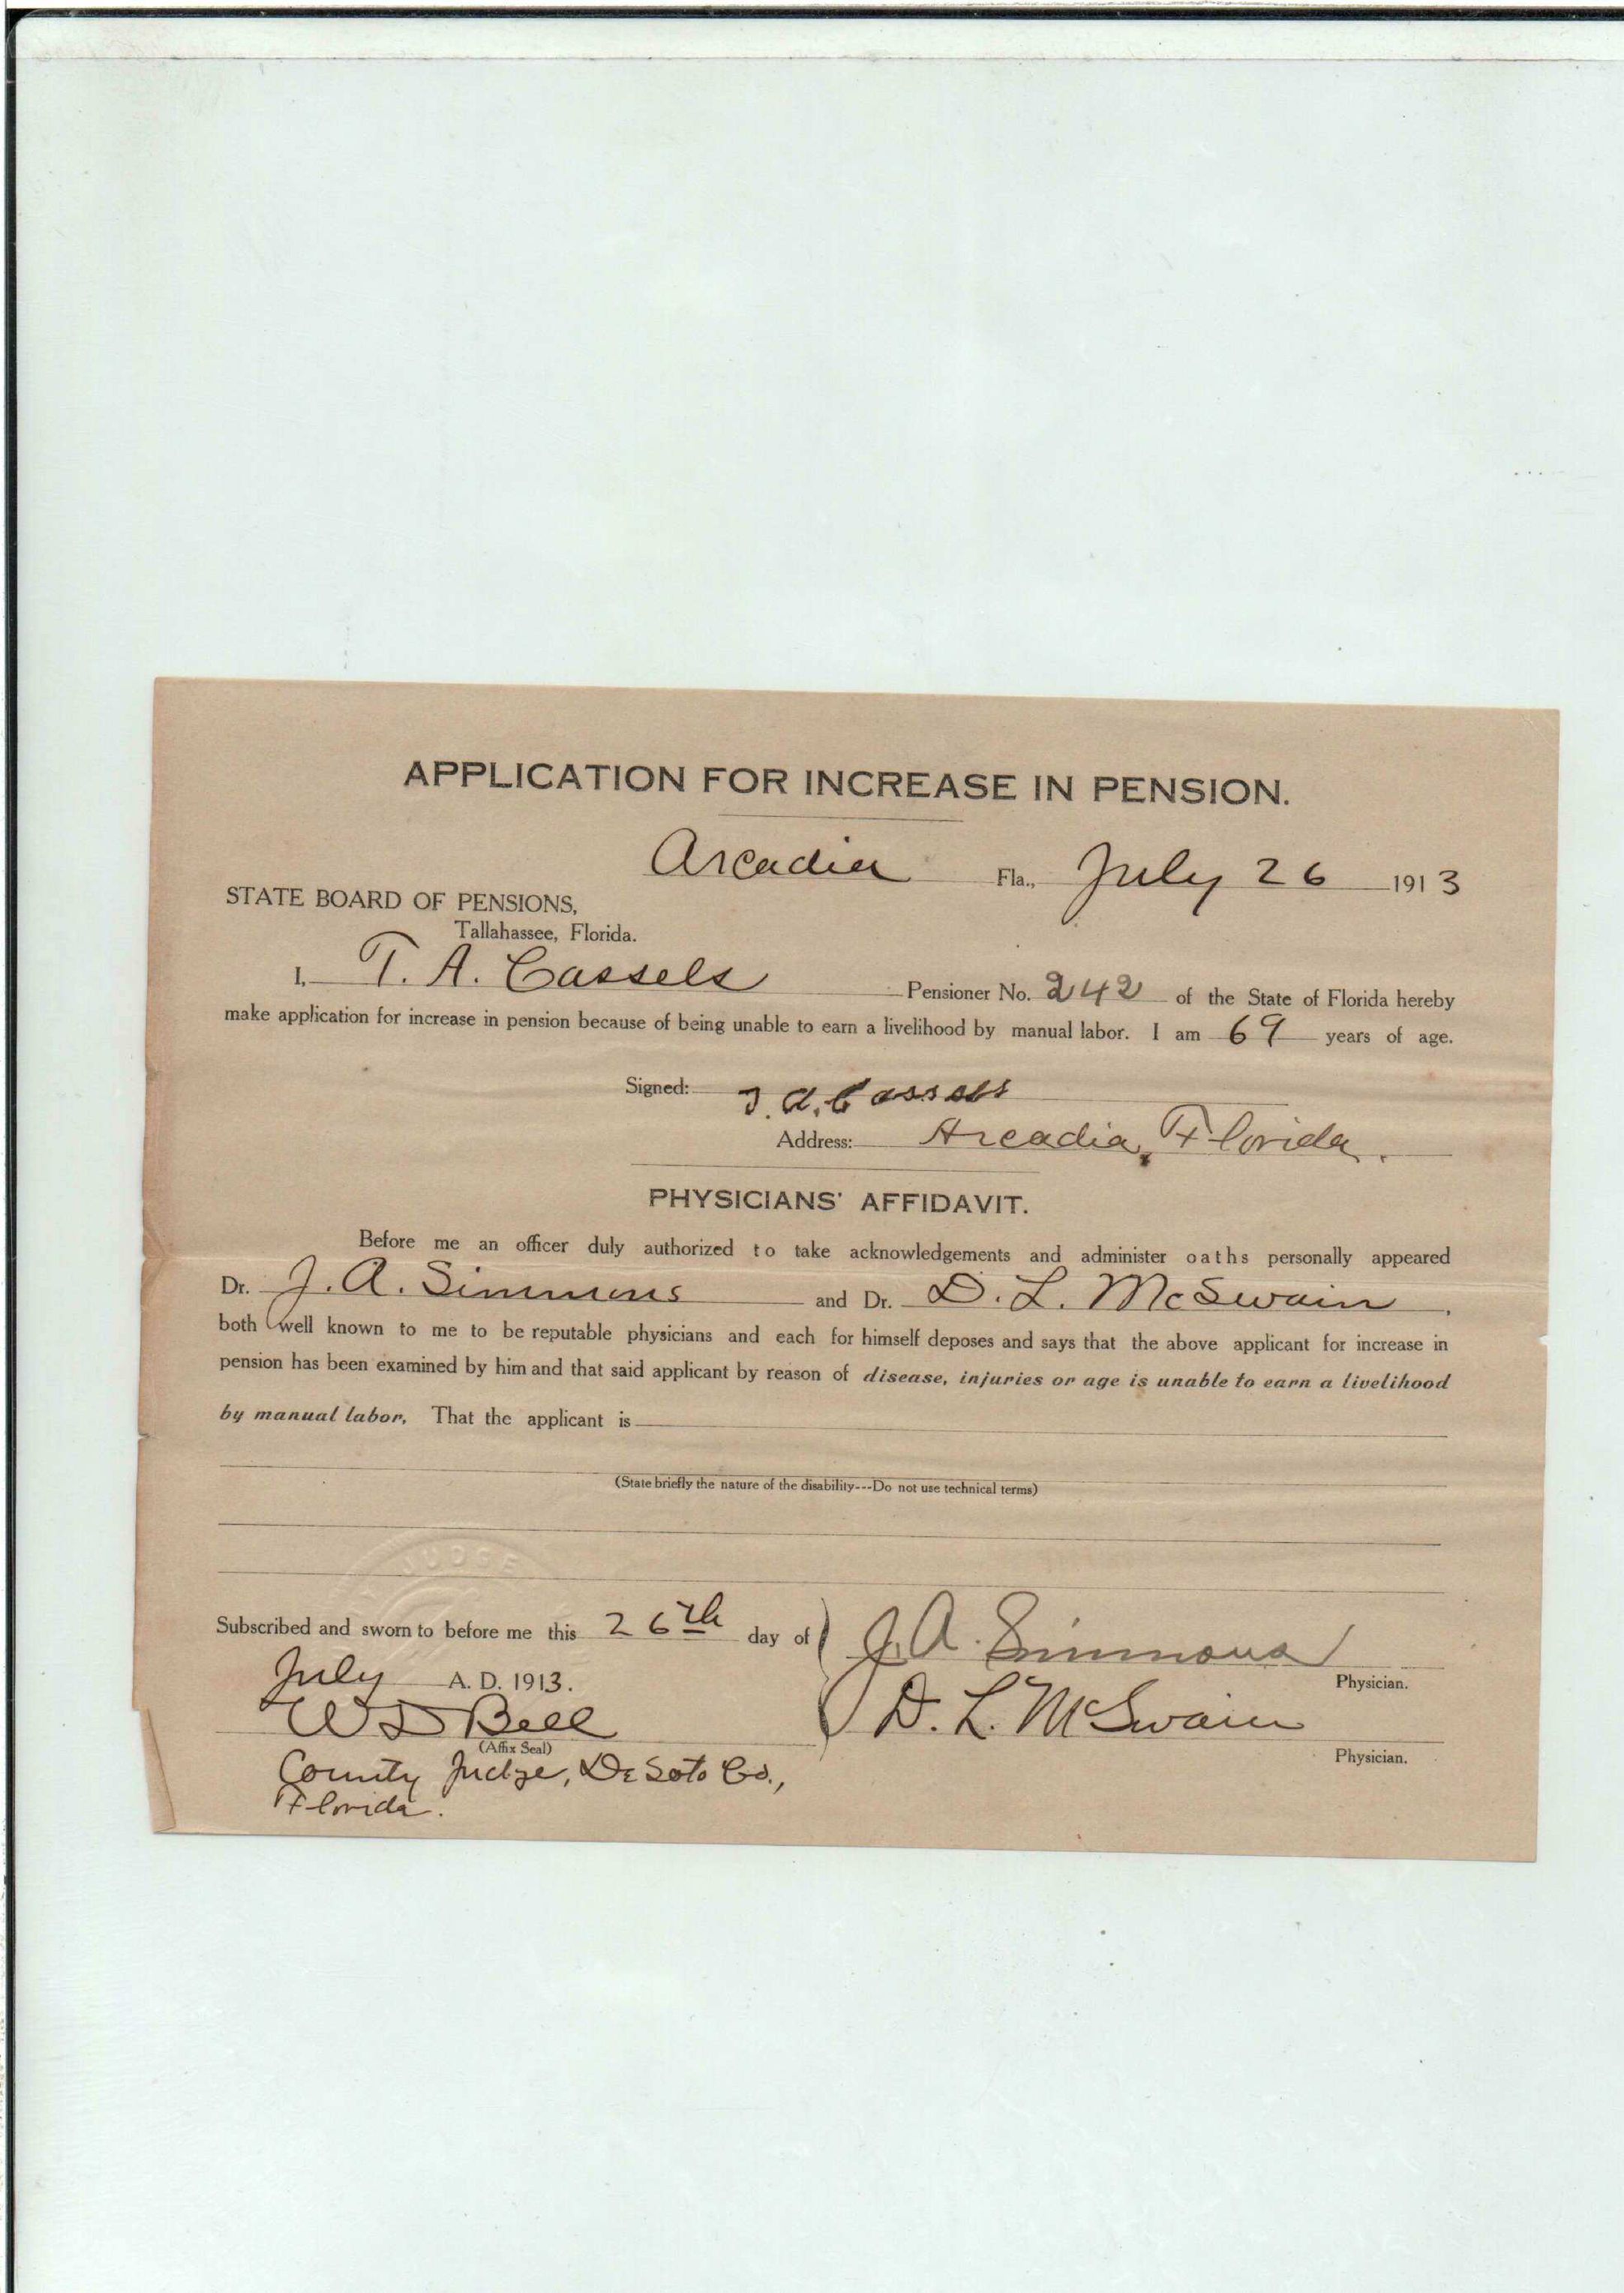 APPLICATION FOR INCREASE IN PENSION.
Arcadia Fla., July 26 1913
STATE BOARD OF PENSIONS,
Tallahassee, Florida.
I, T. A. Cassels Pensioner No. 242 of the State of Florida hereby
make application for increase in pension because of being unable to earn a livelihood by manual labor. I am 69 years of age.
Signed: T. A. Cassels
Address: Arcadia, Florida.
PHYSICIANS' AFFIDAVIT.
Before me an officer duly authorized to take acknowledgements and administer oaths personally appeared
Dr. J. A. Simmons and Dr. D. L. McSwain,
both well known to me to be reputable physicians and each for himself deposes and says that the above applicant for increase in
pension has been examined by him and that said applicant by reason of disease, injuries or age is unable to earn a livelihood
by manual labor. That the applicant is
(State briefly the nature of the disability---Do not use technical terms)
JUDGE
Subscribed and sworn to before me this 26th day of J. A. Simmons
Physician.
July A. D. 1913.
W D Bell D. L. McSwain
(Affix Seal) Physician.
County Judge, De Soto Co.,
Florida.